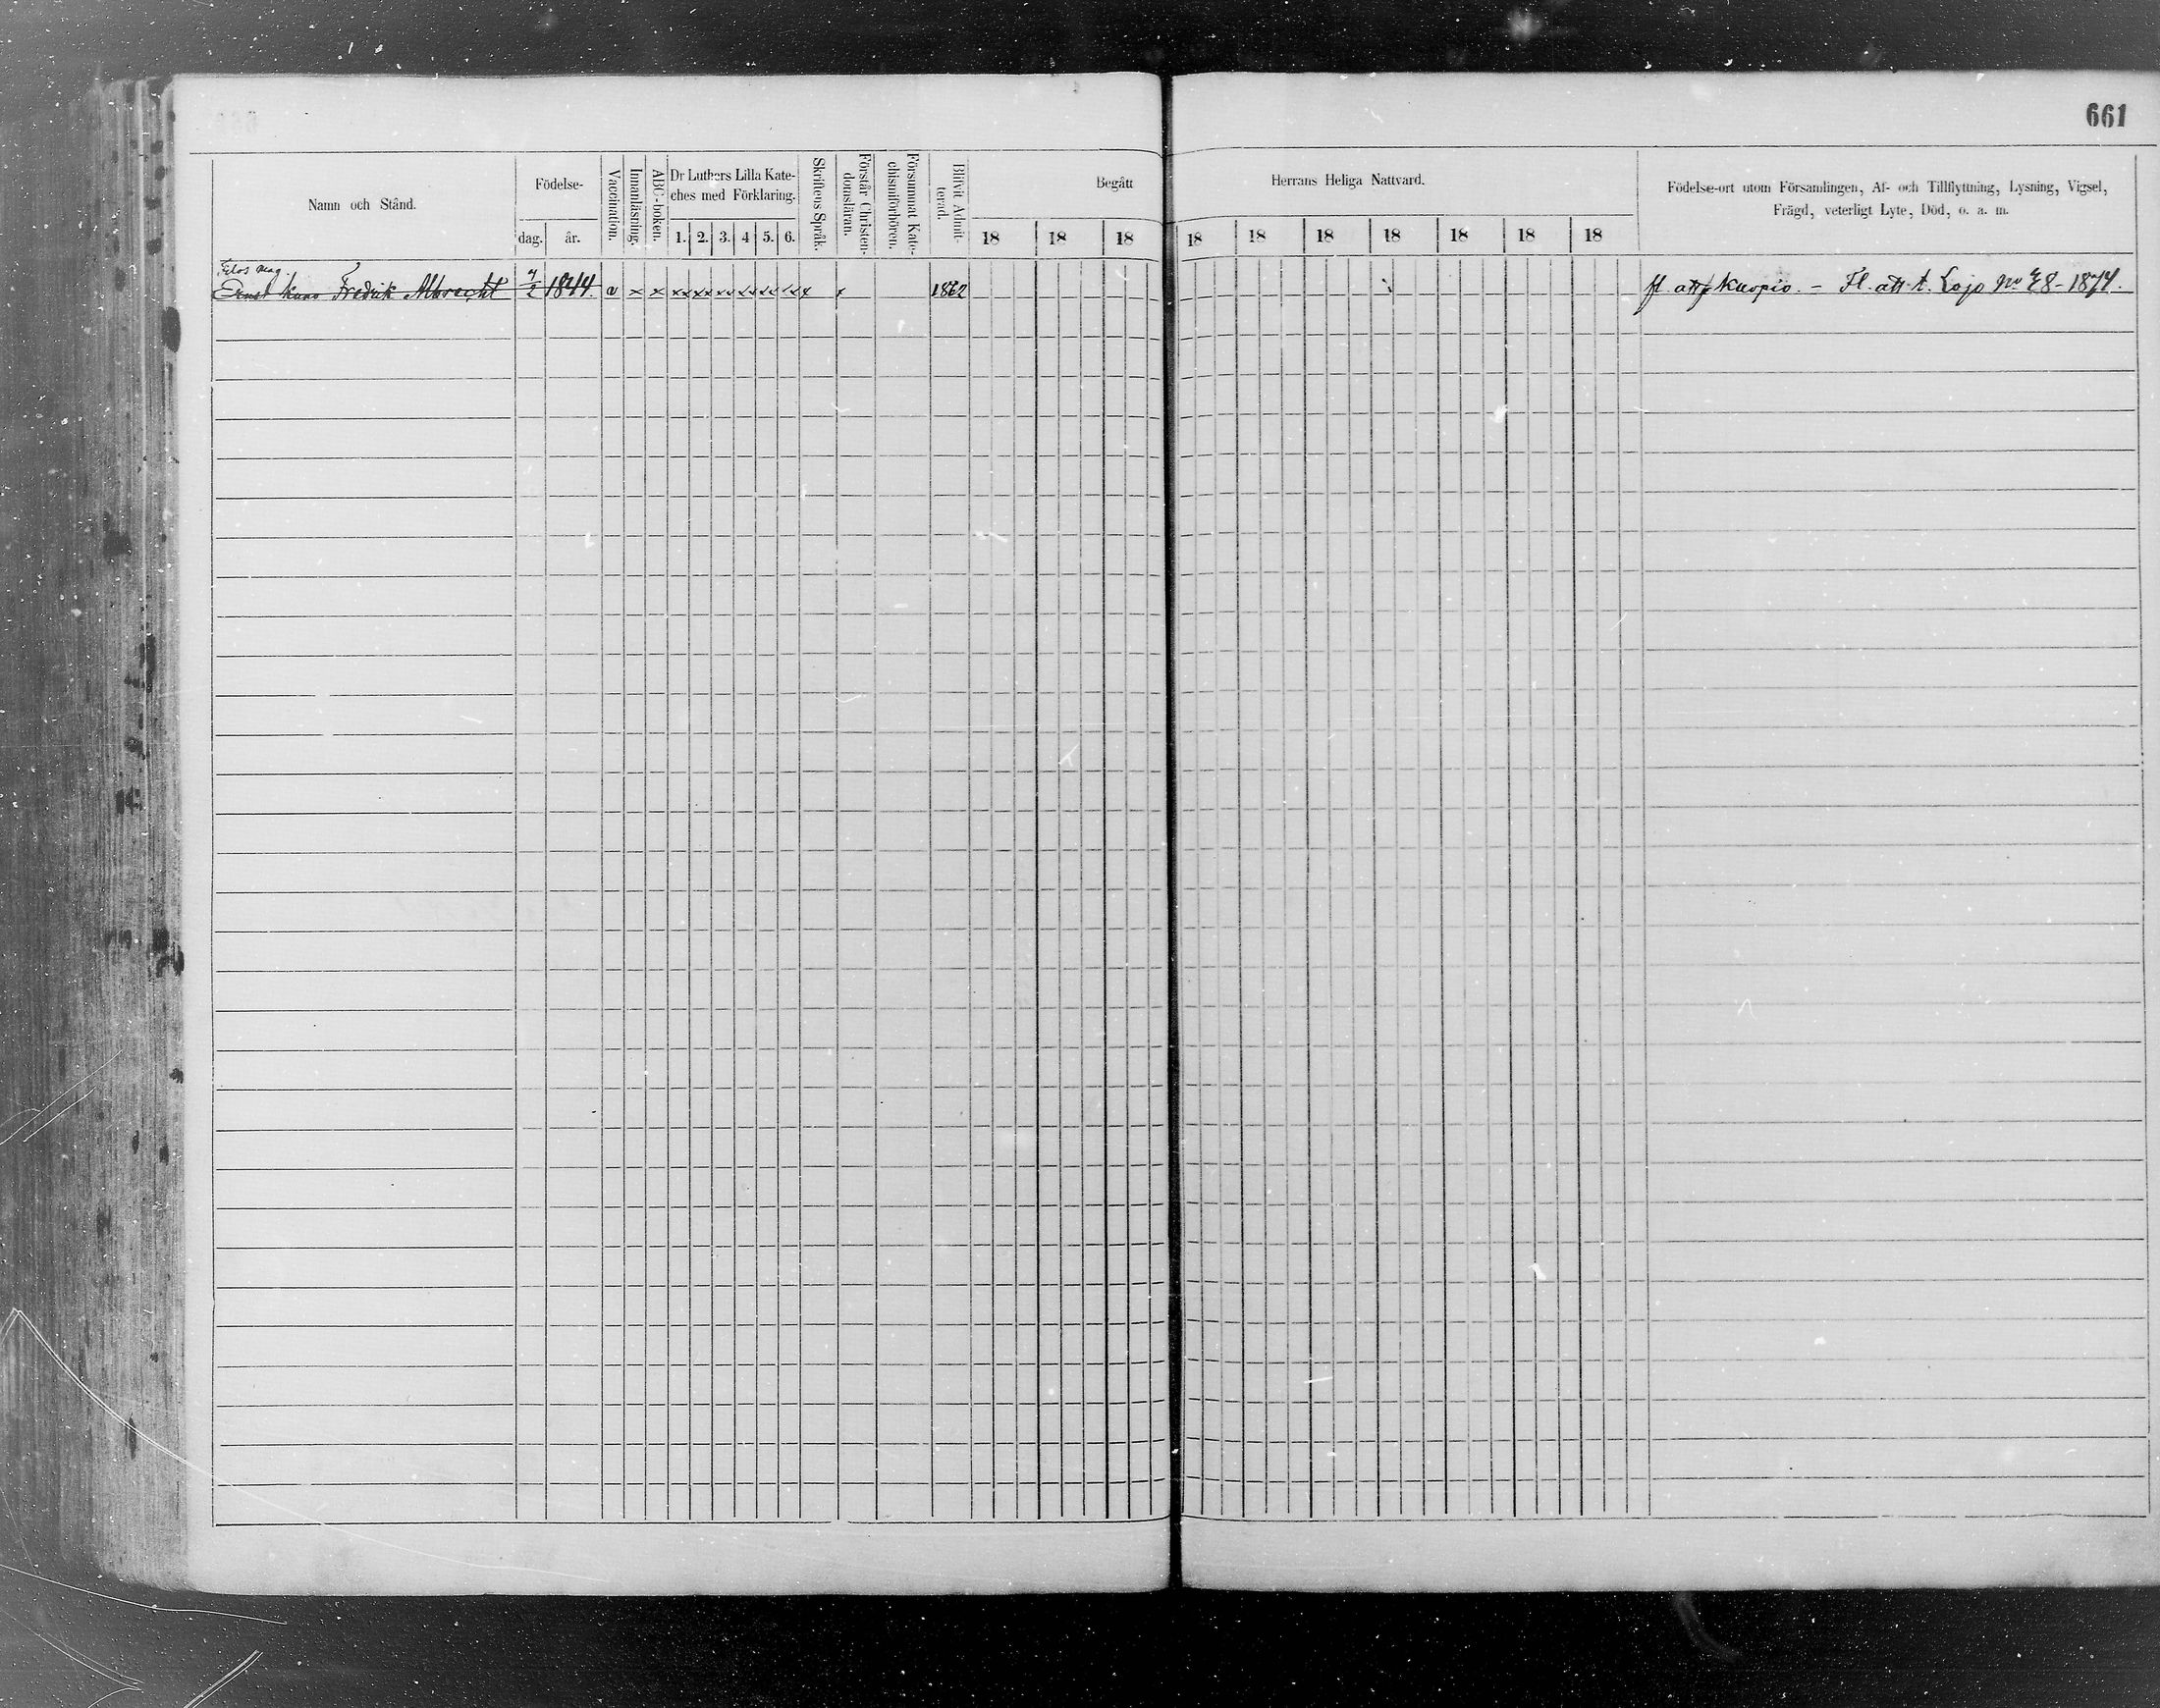 661
Namn och Stånd.
Födelse-
dag.
år.
Vaccination.
Innanläsning.
ABC-boken.
Dr Luthers Lilla Kate-
ches med Förklaring.
1. 2. 3. 4 5. 6.
Skriftens Språk.
Förstår Christen-
domsläran.
Försummat Kate-
chismiförhören.
Blifvit Admit-
terad.
Begått
Herrans Heliga Nattvard.
18 18 18 18 18 18 18 18 18 18
Födelse-ort utom Församlingen, Af- och Tillflyttning, Lysning, Vigsel,
Frägd, veterligt Lyte, Död, o. a. m.
Filos mag.
Ernst Fredrik Albrecht 4/2 1844. v x x x x x x x x x x x x x x x x 1862 fl. att Kuopio. - Fl. att t. Lojo No 48-1874.